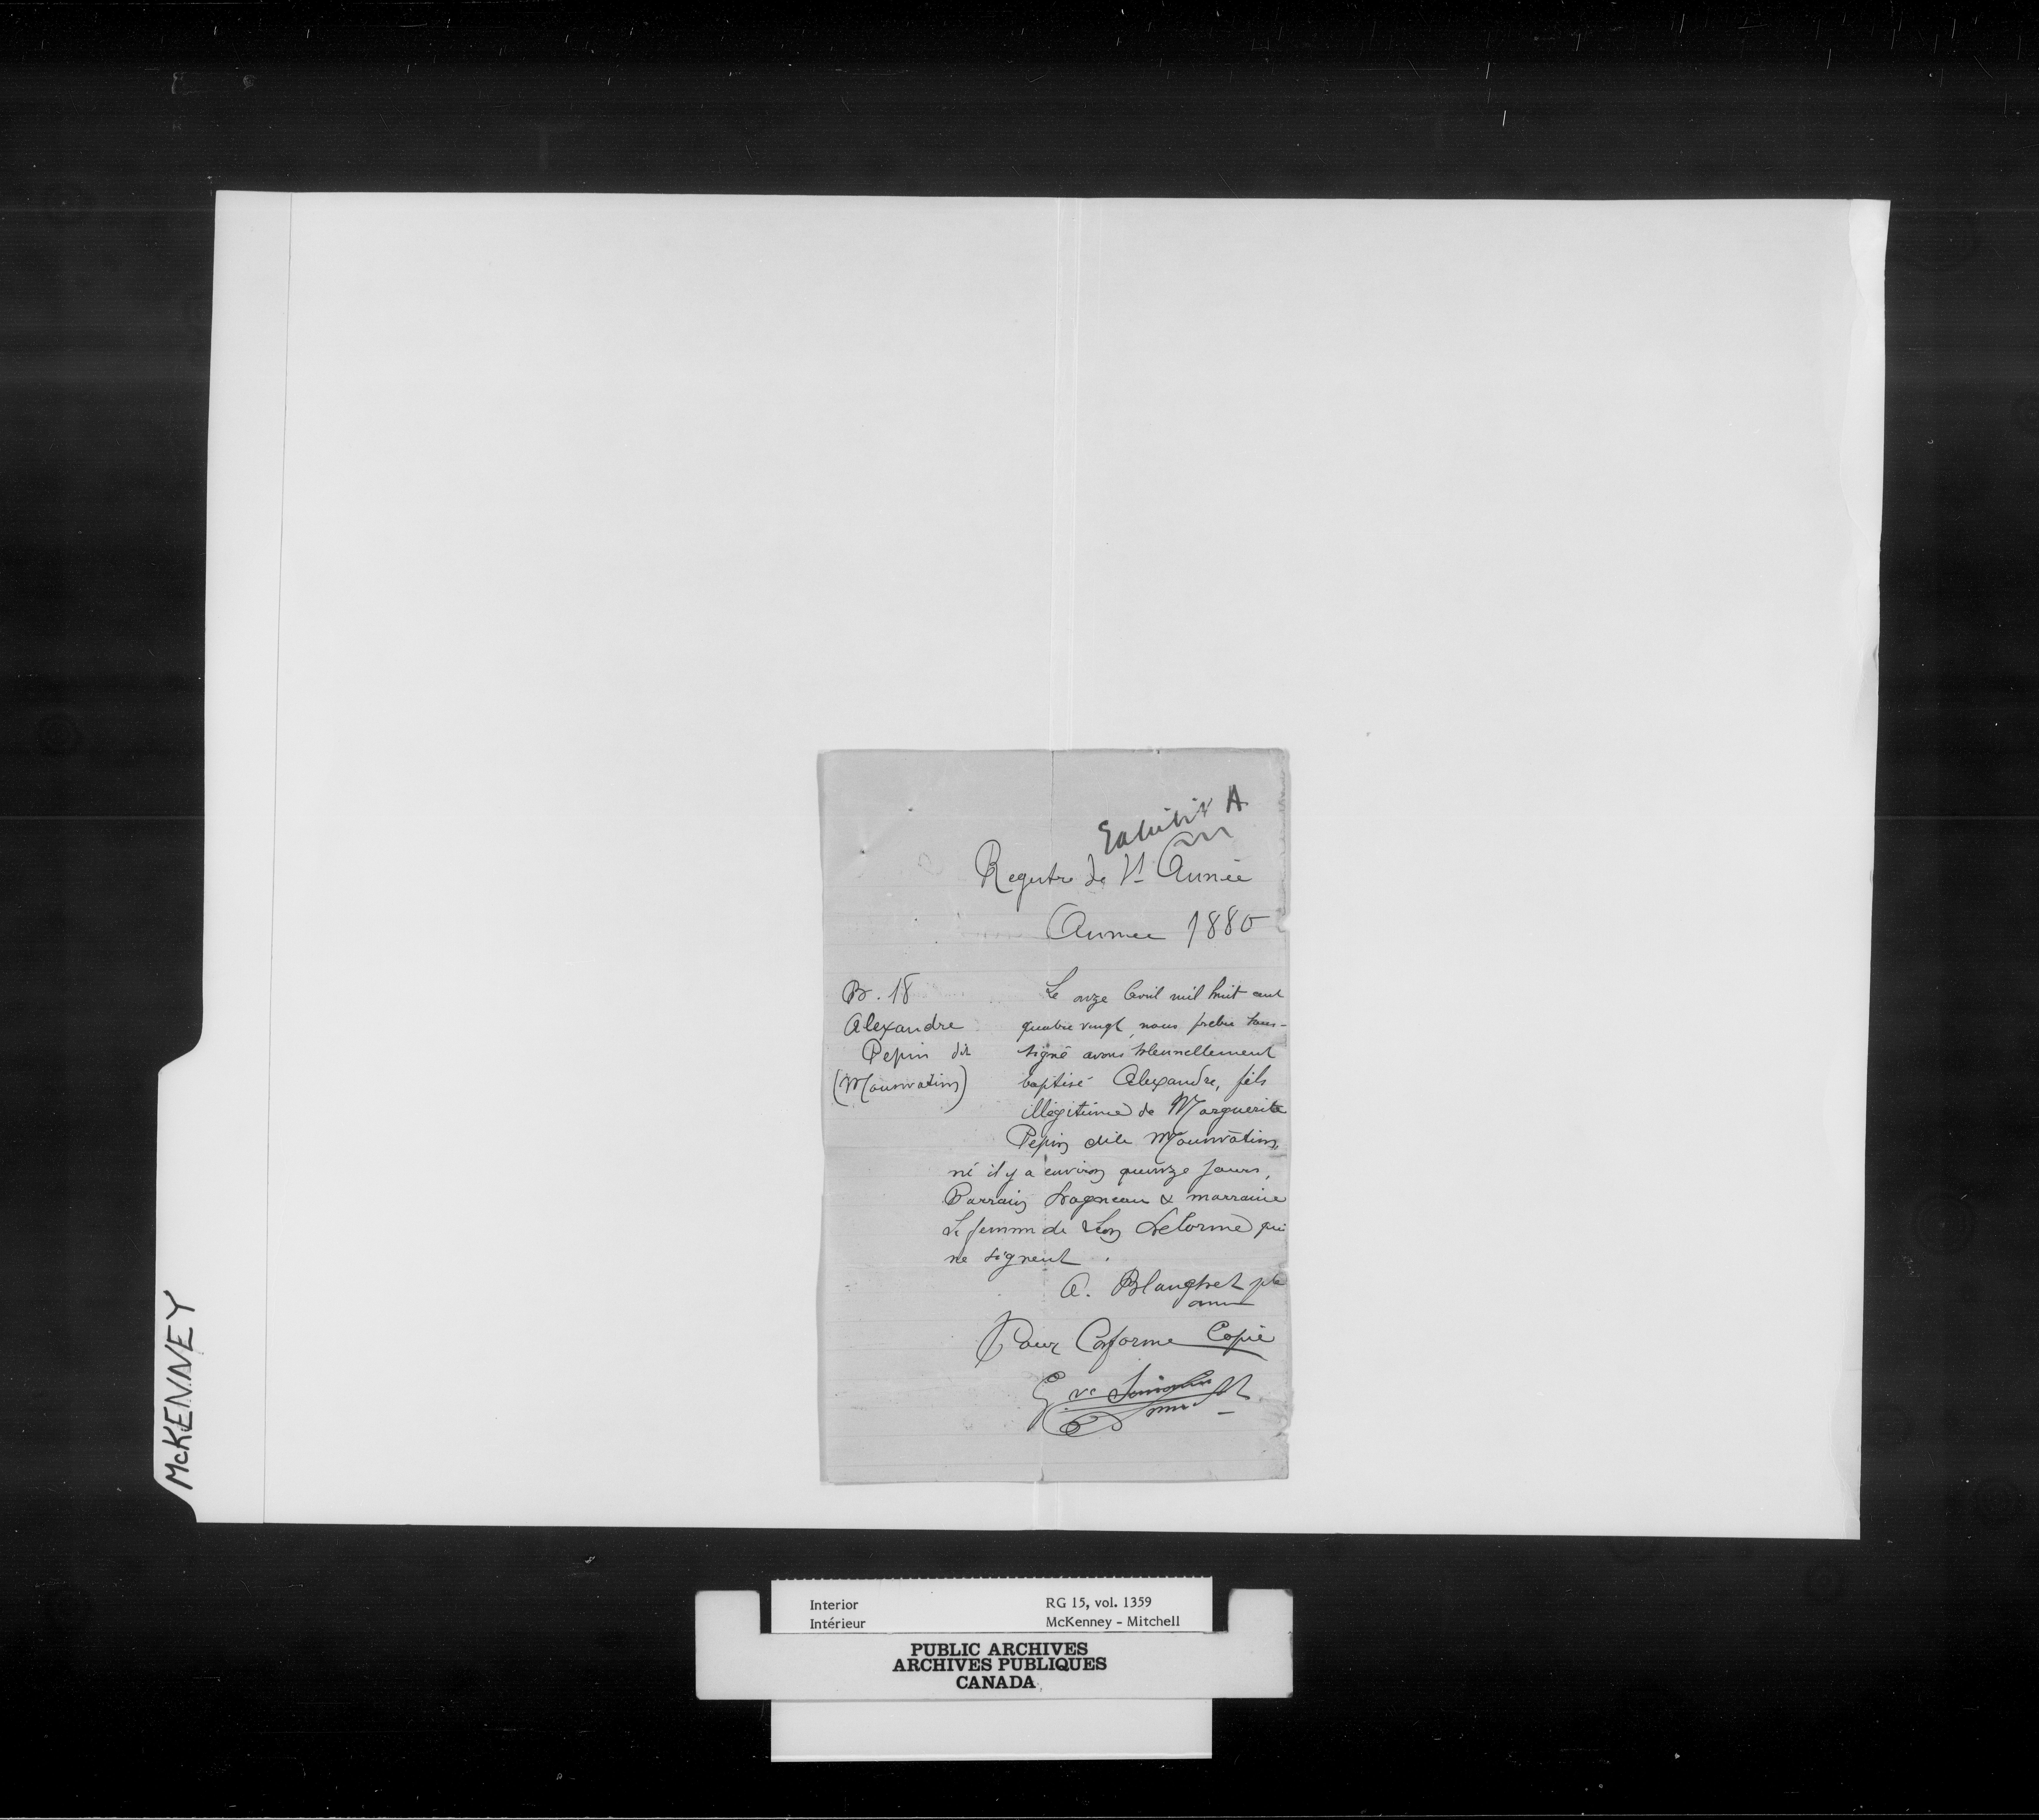 Exhibit A
Registre de St Année
Année 1880
B. 18
Alexandre
Pepin dit
(Mounvatin)
Le onze Avril mil huit cent
quatre vingt, nous prêtre sous-
signé avons solennellement
baptisé Alexandre, fils
illégitime de Marguerite
Pepin dite Mounvatin,
né il y a environ quinze jours,
Parrain Lagneau & marraine
la femme de Léon Delorme qui
ne signent.
A. Blanchet ptr
omi
Pour Conforme Copie
McKENNEY
Interior
Intérieur
RG 15, vol. 1359
McKenney - Mitchell
PUBLIC ARCHIVES
ARCHIVES PUBLIQUES
CANADA